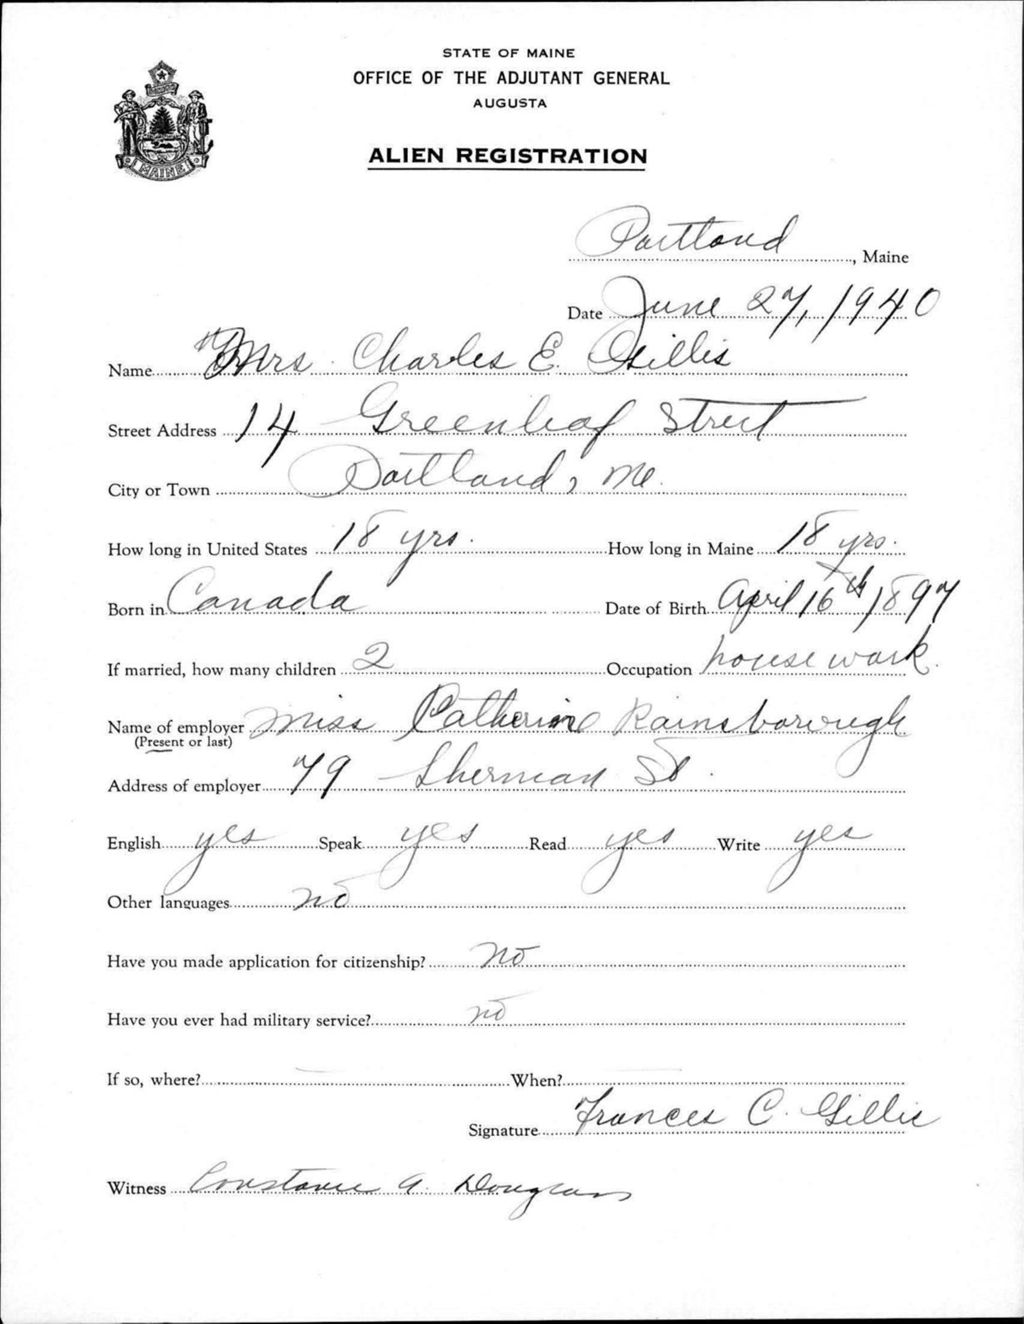 STATE OF MAINE
OFFICE OF THE ADJUTANT GENERAL
AUGUSTA
MAINE
ALIEN REGISTRATION
Portland, Maine
Date June 27, 1940
Name Mrs. Charles E. Gillis
Street Address 14 Greenleaf Street
City or Town Portland, Me.
How long in United States 18 yrs. How long in Maine 18 yrs.
Born in Canada Date of Birth April 16th 1897
If married, how many children 2 Occupation house work.
Name of employer Miss Catherine Rainsborough
(Present or last)
Address of employer 79 Sherman St.
English yes Speak yes Read yes Write yes
Other languages no
Have you made application for citizenship? No
Have you ever had military service? no
If so, where? — When? —
Signature Frances C. Gillis
Witness Constance A. Douglass